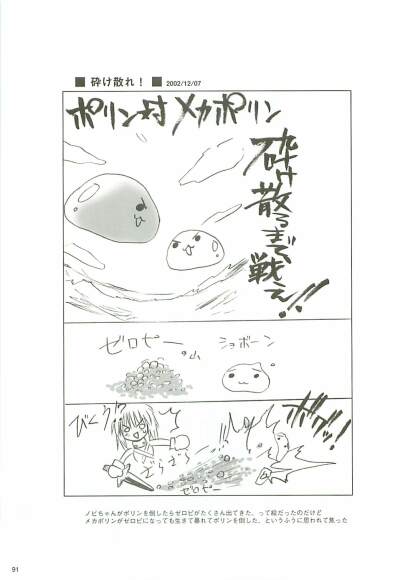 ■ 砕け散れ！ ■ 2002/12/07
ポリン対メカポリン
砕け
散るまで
戦え!!
ゼロピー
ショボーン
びくぅ!?
ざらざら
ゼロピー
ボグッ!!
ノビちゃんがポリンを倒したらゼロピがたくさん出てきた、って絵だったのだけど
メカポリンがゼロピになっても生きて暴れてポリンを倒した、というふうに思われて焦った
91